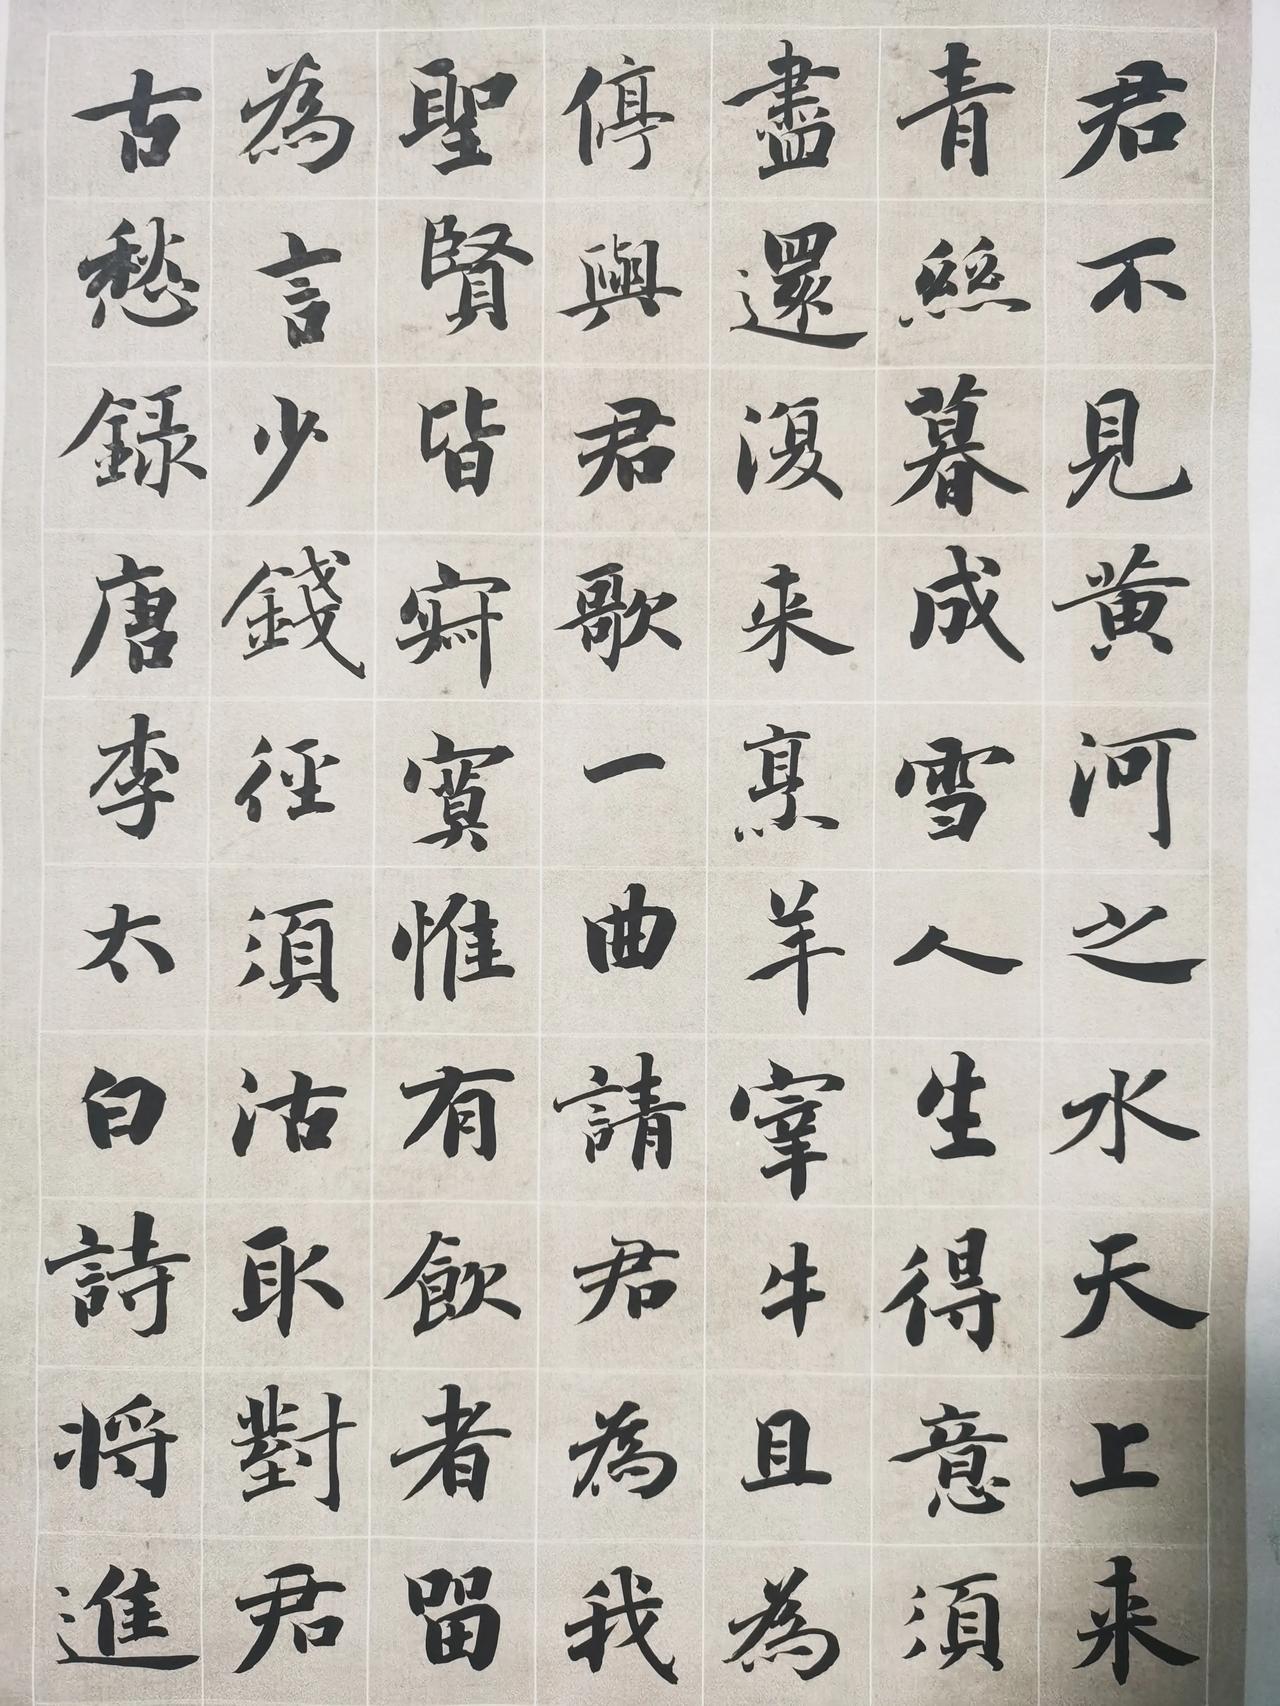 君不見黄河之水天上来
青絲暮成雪人生得意須
盡還復来烹羊宰牛且為
停與君歌一曲請君為我
聖賢皆寂寞惟有飲者留
為言少錢徑須沽取對君
古愁錄唐李太白詩将進